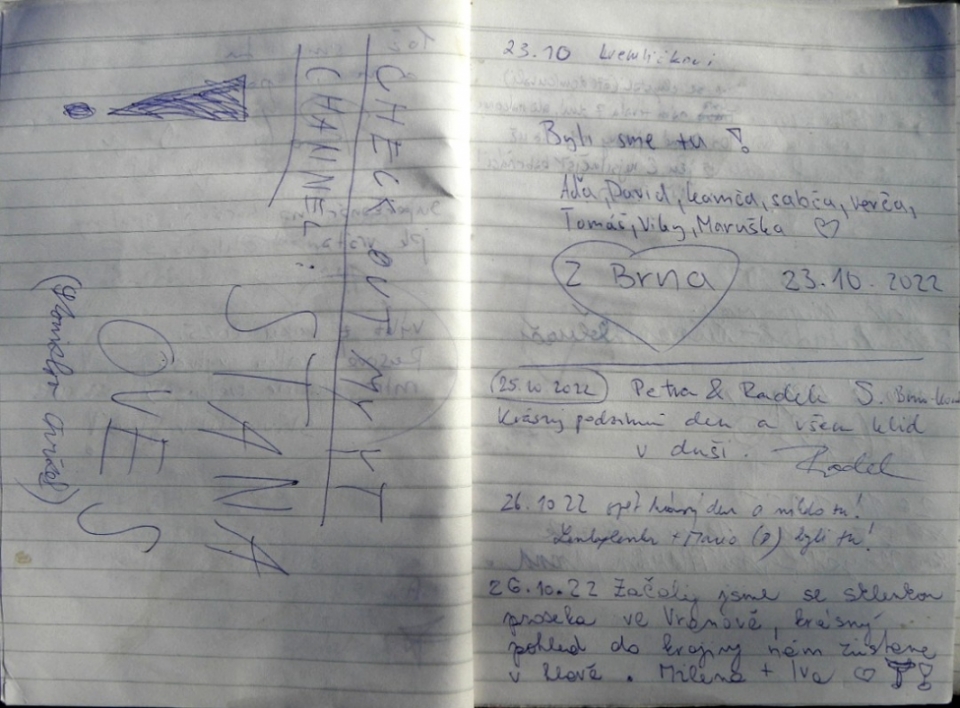 CHECK OUT MY YT
CHANNEL:
STANA
OVES
23.10
Byli sme tu !
Aďa, David, Kamča, sabča, verča,
Tomáš, Viky, Maruška ♡
Z Brna 23.10.2022
25.10 2022 Petra & Radek S.
Krásný podzimní den a všem klid
v duši. Radek
26.10.22 den a nikdo tu!
+ Mario byli tu!
26.10.22 Začaly jsme se sklenkou
proseka ve Vranově, krásný
pohled do krajiny nám zůstane
v hlavě. Milena + Iva ♡